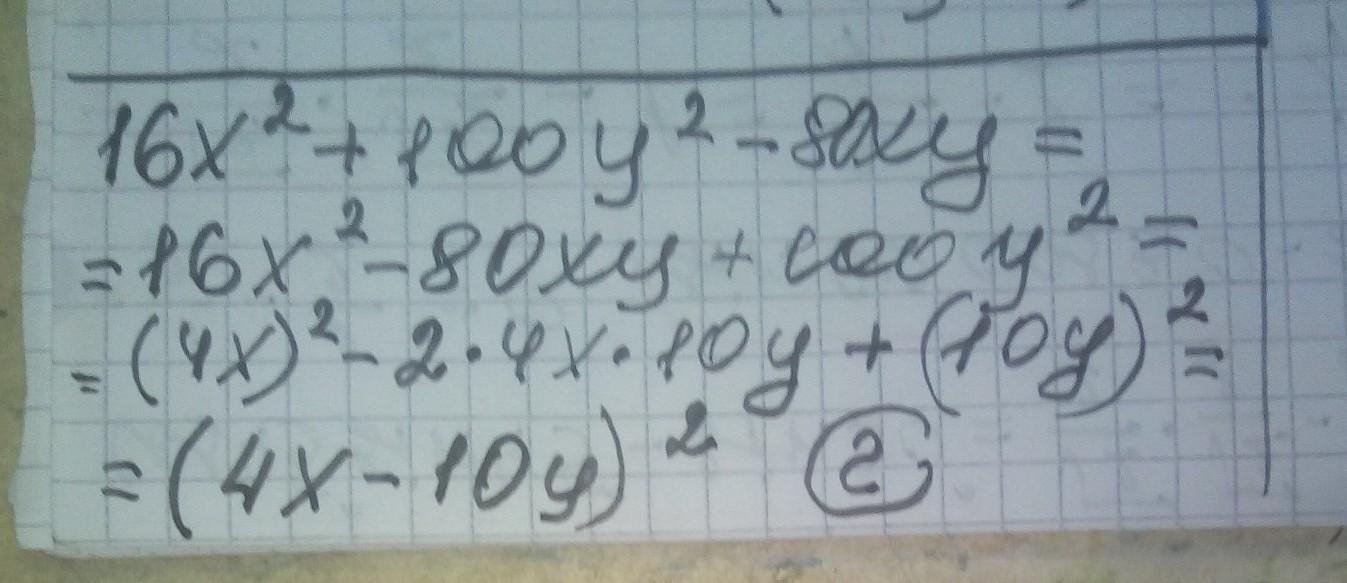 16x² + 100y² - 80xy =
= 16x² - 80xy + 100y² =
= (4x)² - 2·4x·10y + (10y)² =
= (4x - 10y)² г